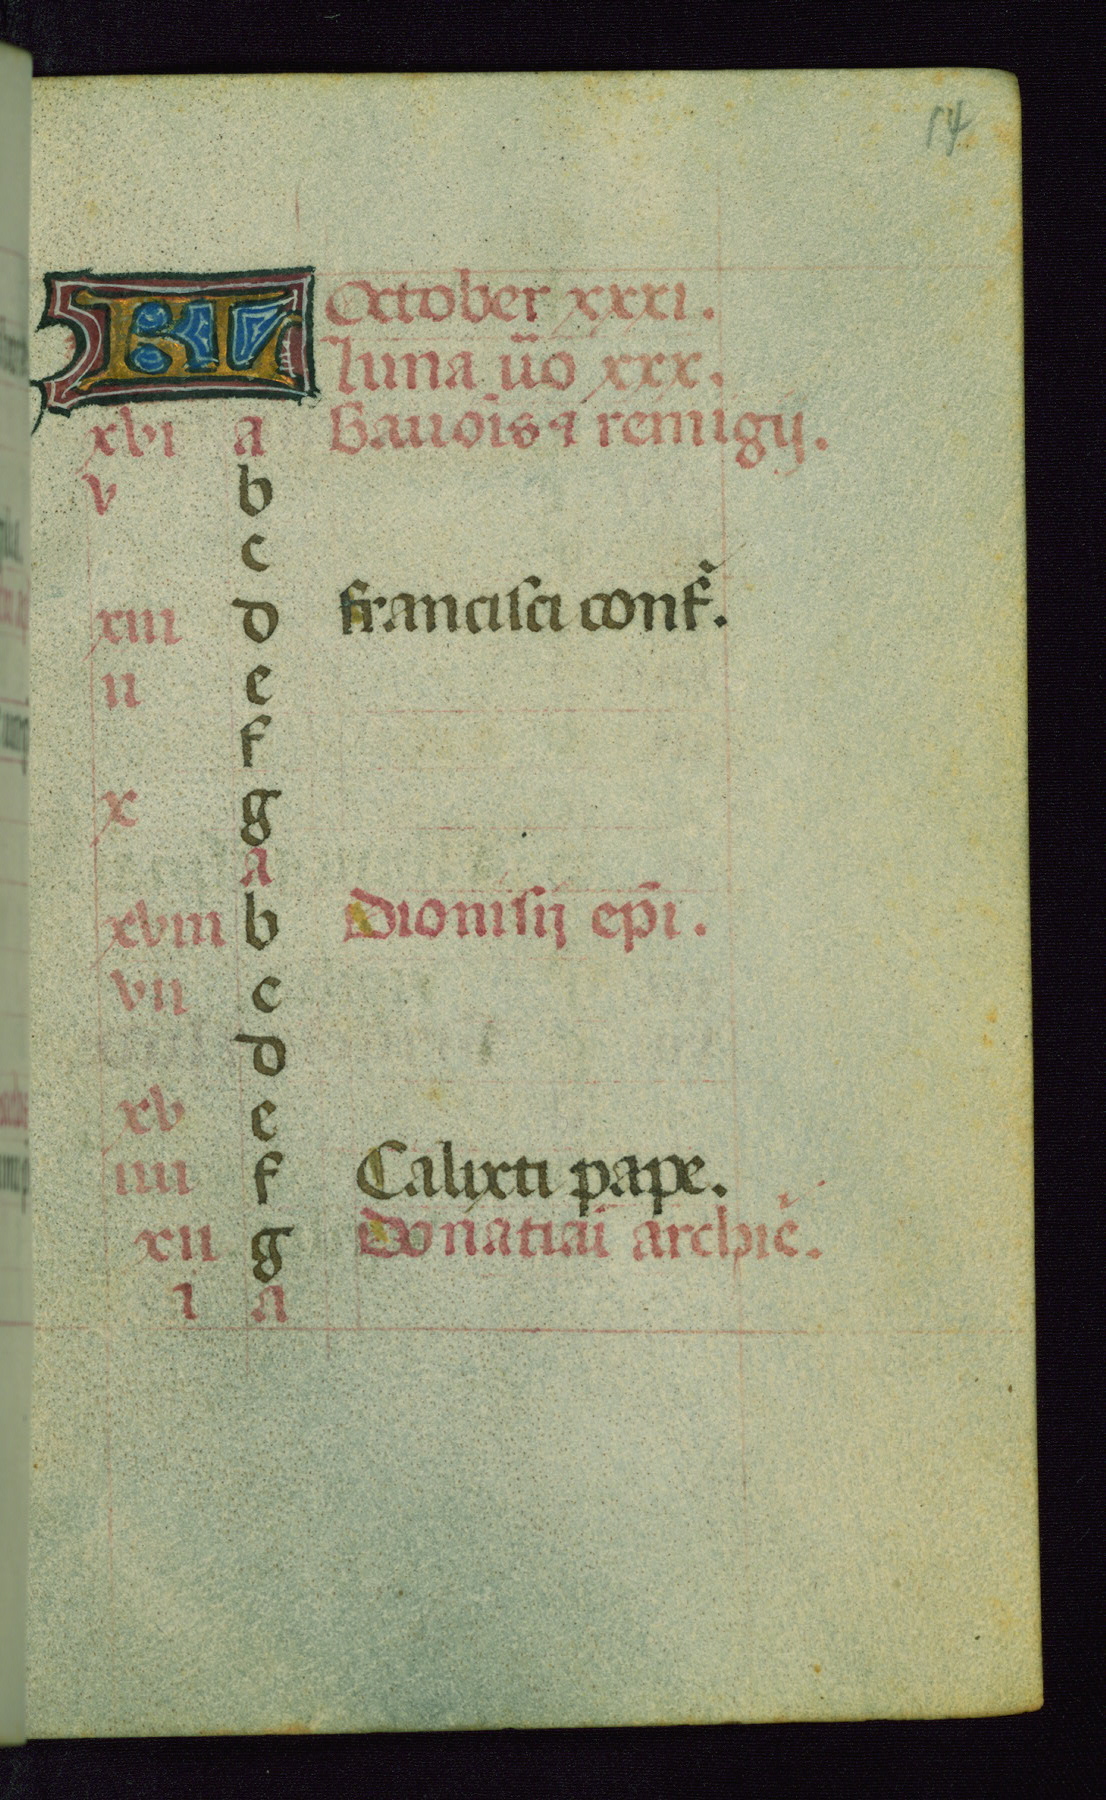 14
KL October xxxi.
luna ūo xxx.
xvi a Bauois ⁊ remigij.
v b
c
xiii d francisci conf̄.
ii e
f
x g
a
xviii b Dionisij ep̄i.
vii c
d
xv e
iiii f Calixti pape.
xii g Donatiai archiē.
i a